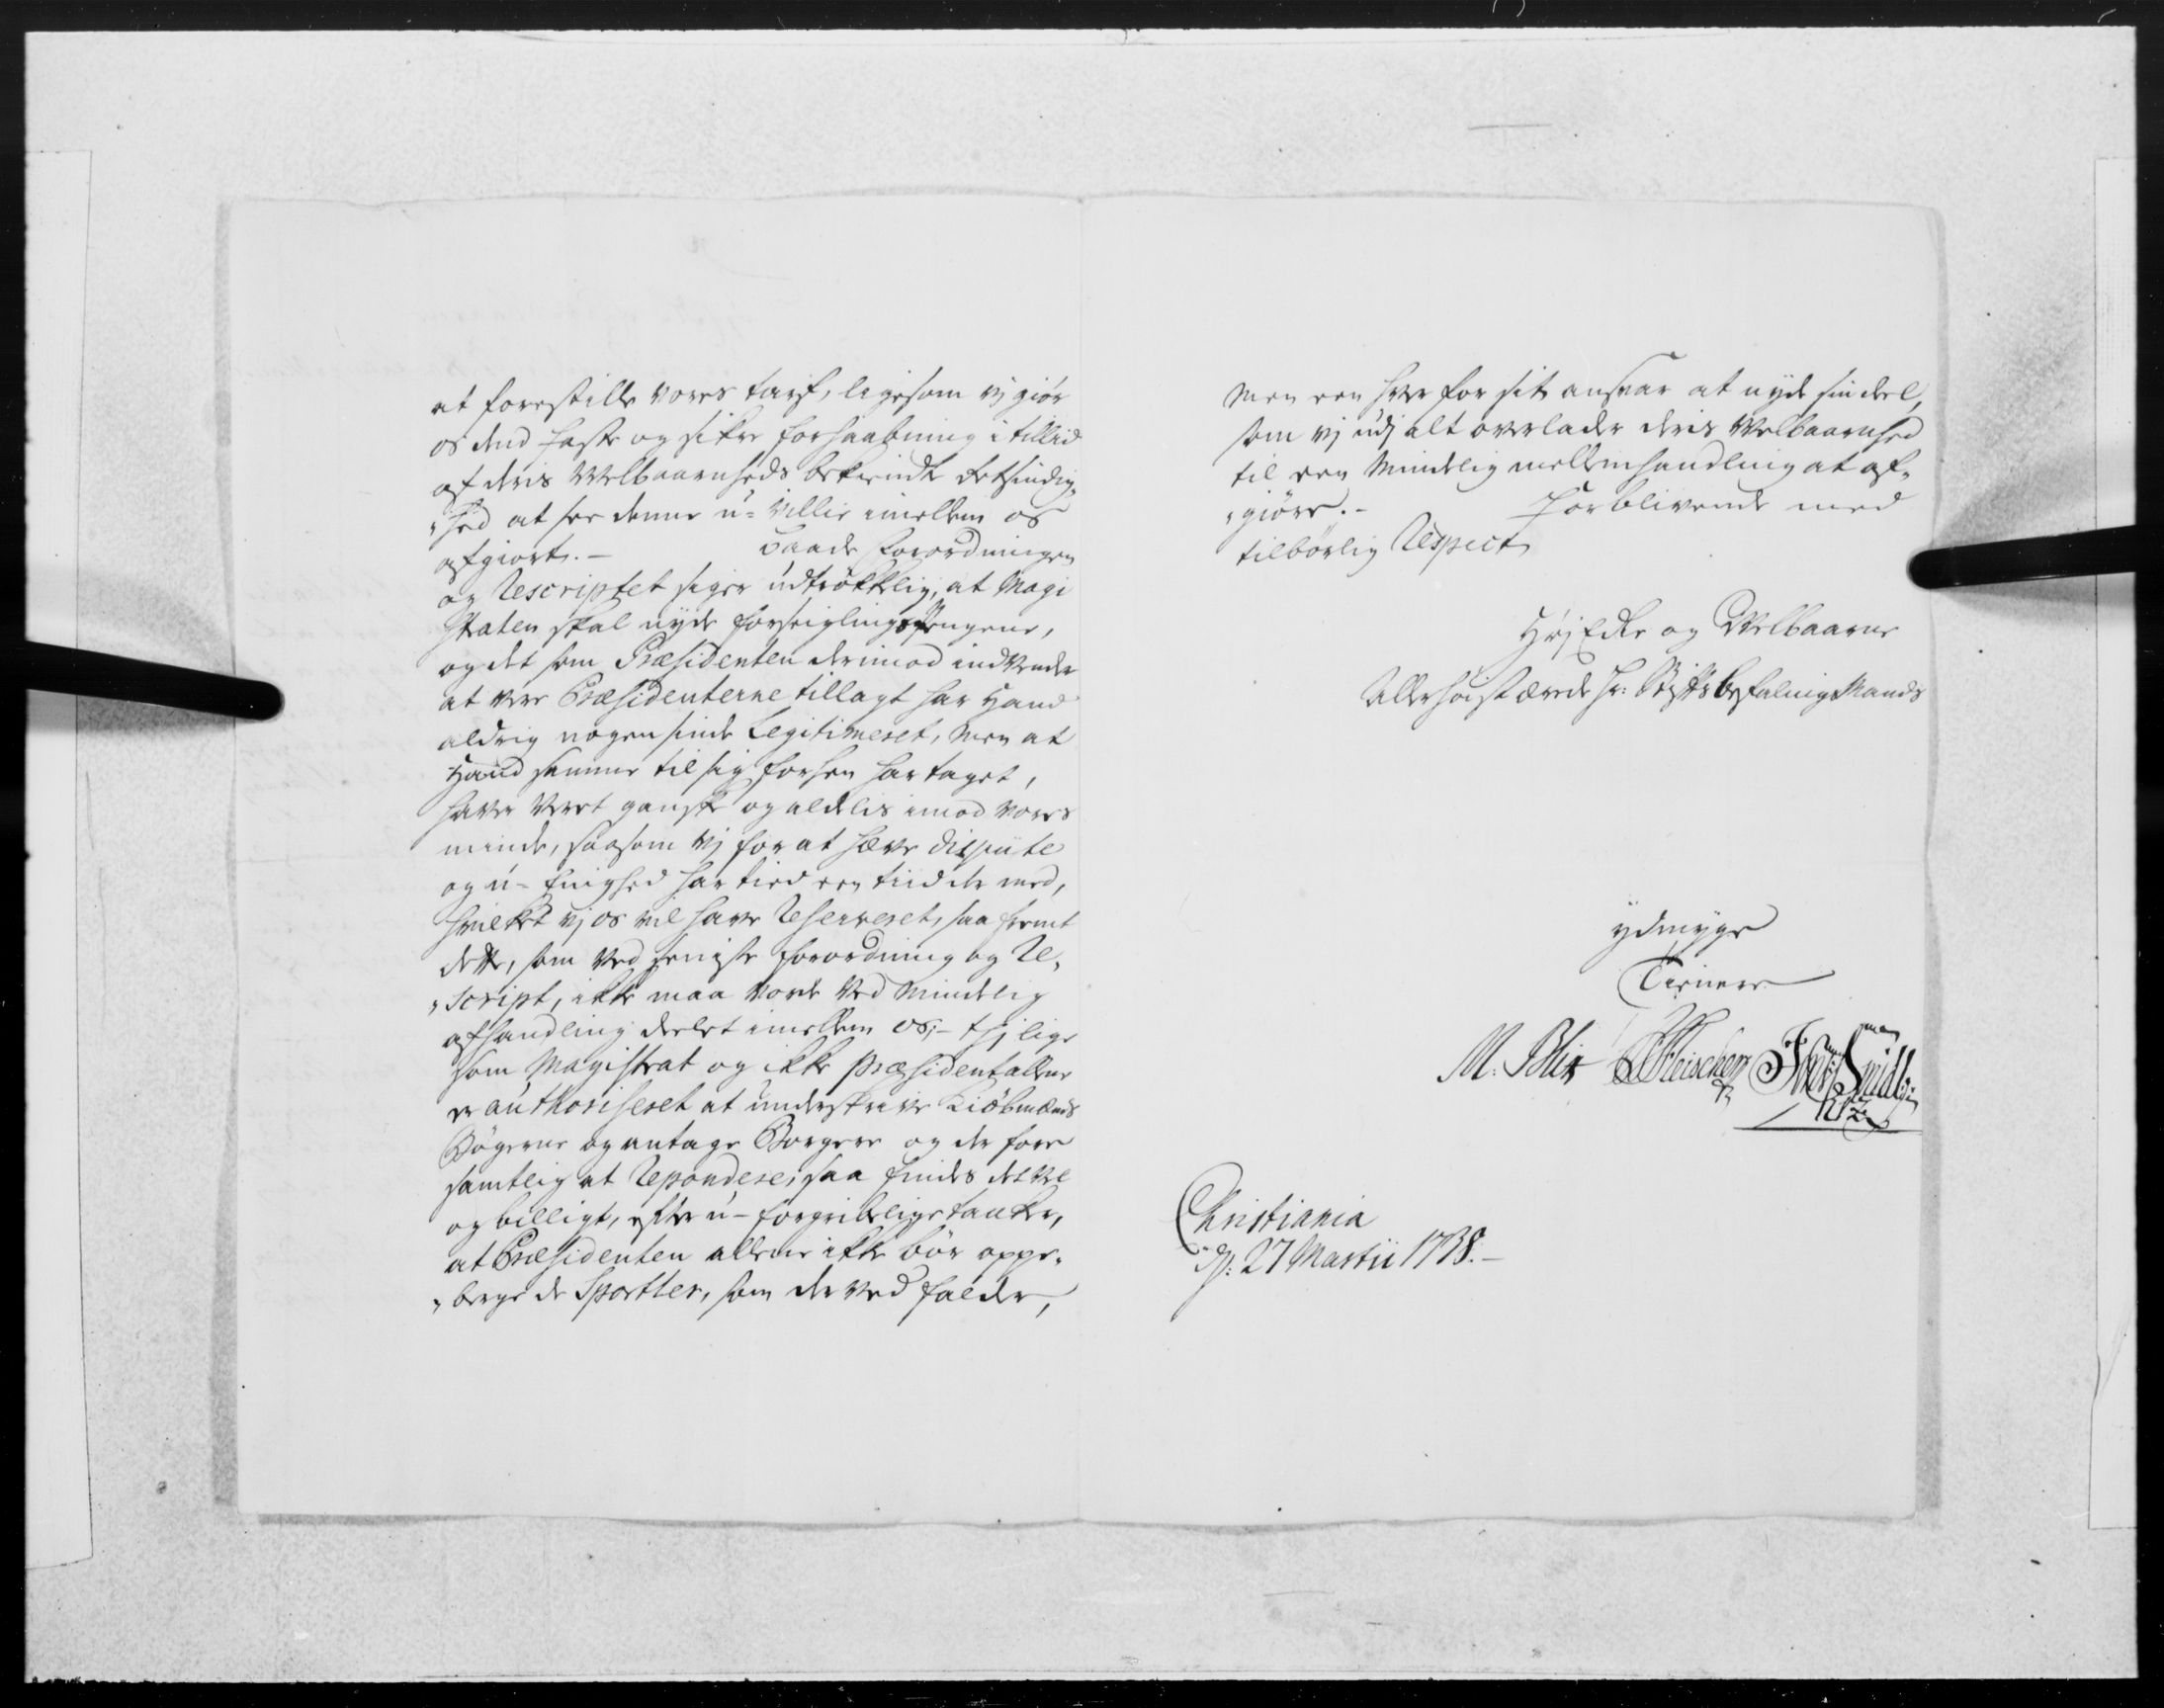 at forestille vores tarf, ligesom vj giør
os dend faste og sikre forhaabning i tillid
af deris Welbaarnheds bekiendte Retsindig-
hed at see denne u-villie imellem os
afgiort.- Baade Forordningen
og Rescriptet siger udtrøkkelig, at Magi
straten skal nyde forseiglings Pengene,
og det som Præsidenten derimod indvender
at være Præsidenterne tillagt har Hand
aldrig nogensinde Legitimeret, men at
Hand samme til sig forhen har taget,
haver været ganske og aldelis imod vores
minde, saasom vj for at hæve dispute
og u-Enighed har tied een tiid der med,
hvilket vj os vil have Reserveret, saa fremt
dette, som ved seniste forordning og Re-
script, ikke maa vorde ved mindelig
afhandling deelet imellem os;- thj lige
som Magistrat og ikke Præsident allene
er authoriseret at underskrive Kiøbmænds
Bøgerne og antage Borgere og der fore
samtlig at Repondere, saa findes det vel
og billigt, efter u-forgribelige tanker,
at Præsidenten allene ikke bør oppe-
berge de Sportler, som der ved falder,
men een hver for sit ansvar at nyde sin deel,
som vj udj alt overlader deris Welbaarnhed
til een Mindelig mellemhandling at af-
giøre.- Forblivende med
tilbørlig Respect
Højædle og Welbaarne
Allerhøistærede Hr: Stiftsbefalings Mands
ydmyge
Tienere
M. Blix Fleischer
Christiania
d: 27 Martii 1738.-